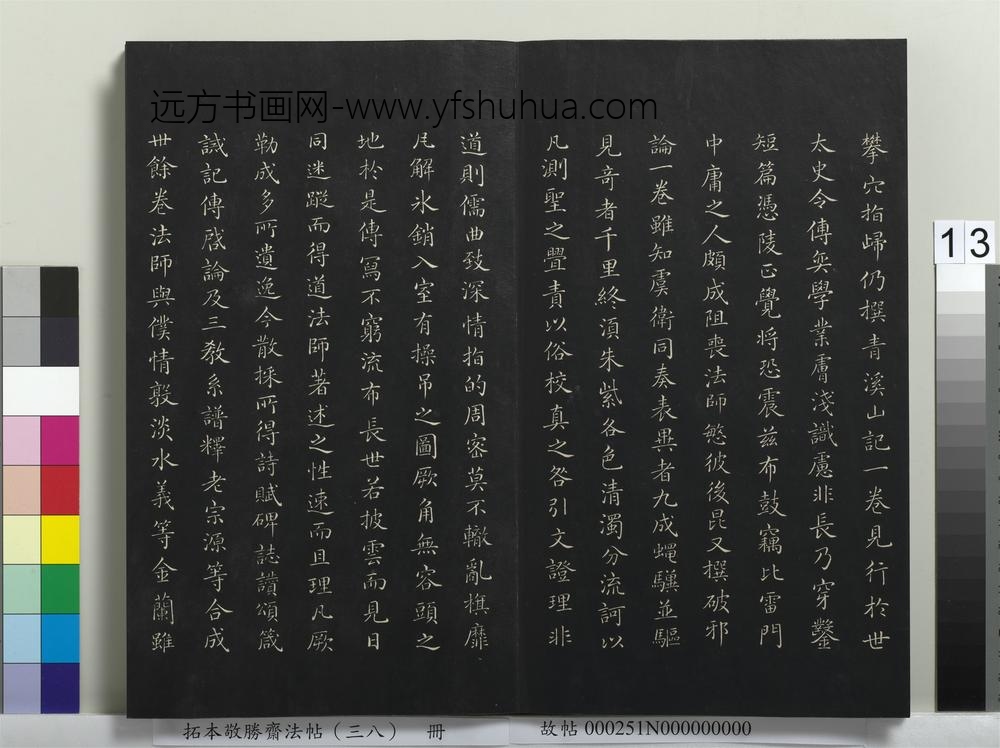 远方书画网-www.yfshuhua.com
攀穴指歸仍撰青溪山記一卷見行於世
太史令傅奕學業膚淺識慮非長乃穿鑿
短篇憑陵正覺將恐震茲布鼓竊比雷門
中庸之人頗成阻喪法師慜彼後昆又撰破邪
論一卷雖知虞衛同奏表異者九成蠅驥並驅
見奇者千里終須朱紫各色清濁分流訶以
凡測聖之舋責以俗校真之咎引文證理非
道則儒曲致深情指的周密莫不轍亂旗靡
瓦解氷銷入室有操吊之圖厥角無容頭之
地於是傳寫不窮流布長世若披雲而見日
同迷蹤而得道法師著述之性速而且理凡厥
勒成多所遺逸今散採所得詩賦碑誌讃頌箴
誡記傳啓論及三教系譜釋老宗源等合成
卅餘卷法師與僕情敦淡水義等金蘭雖
13
拓本敬勝齋法帖（三八） 冊
故帖 000251N000000000